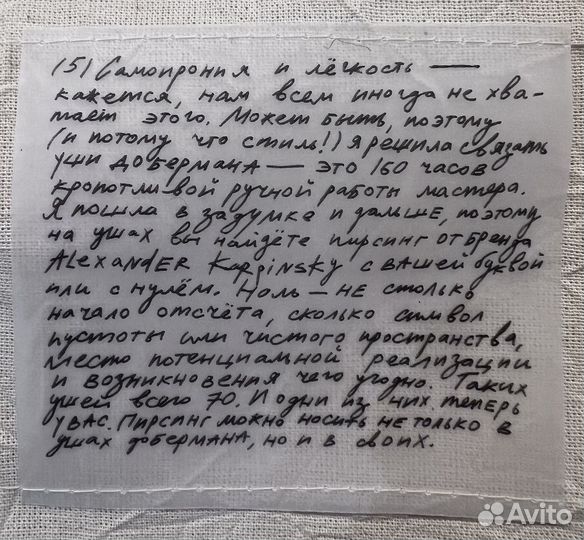 (5) Самоирония и лёгкость —
кажется, нам всем иногда не хва-
тает этого. Может быть, поэтому
(и потому что стиль!) я решила связать
уши добермана — это 160 часов
кропотливой ручной работы мастера.
Я пошла в задумке и дальше, поэтому
на ушах вы найдёте пирсинг от бренда
ALEXANDER Karginsky с вашей буквой
или с нулём. Ноль — не столько
начало отсчёта, сколько символ
пустоты или чистого пространства,
место потенциальной реализации
и возникновения чего угодно. Таких
ушей всего 70. И одни из них теперь
у вас. Пирсинг можно носить не только в
ушах добермана, но и в своих.
Avito